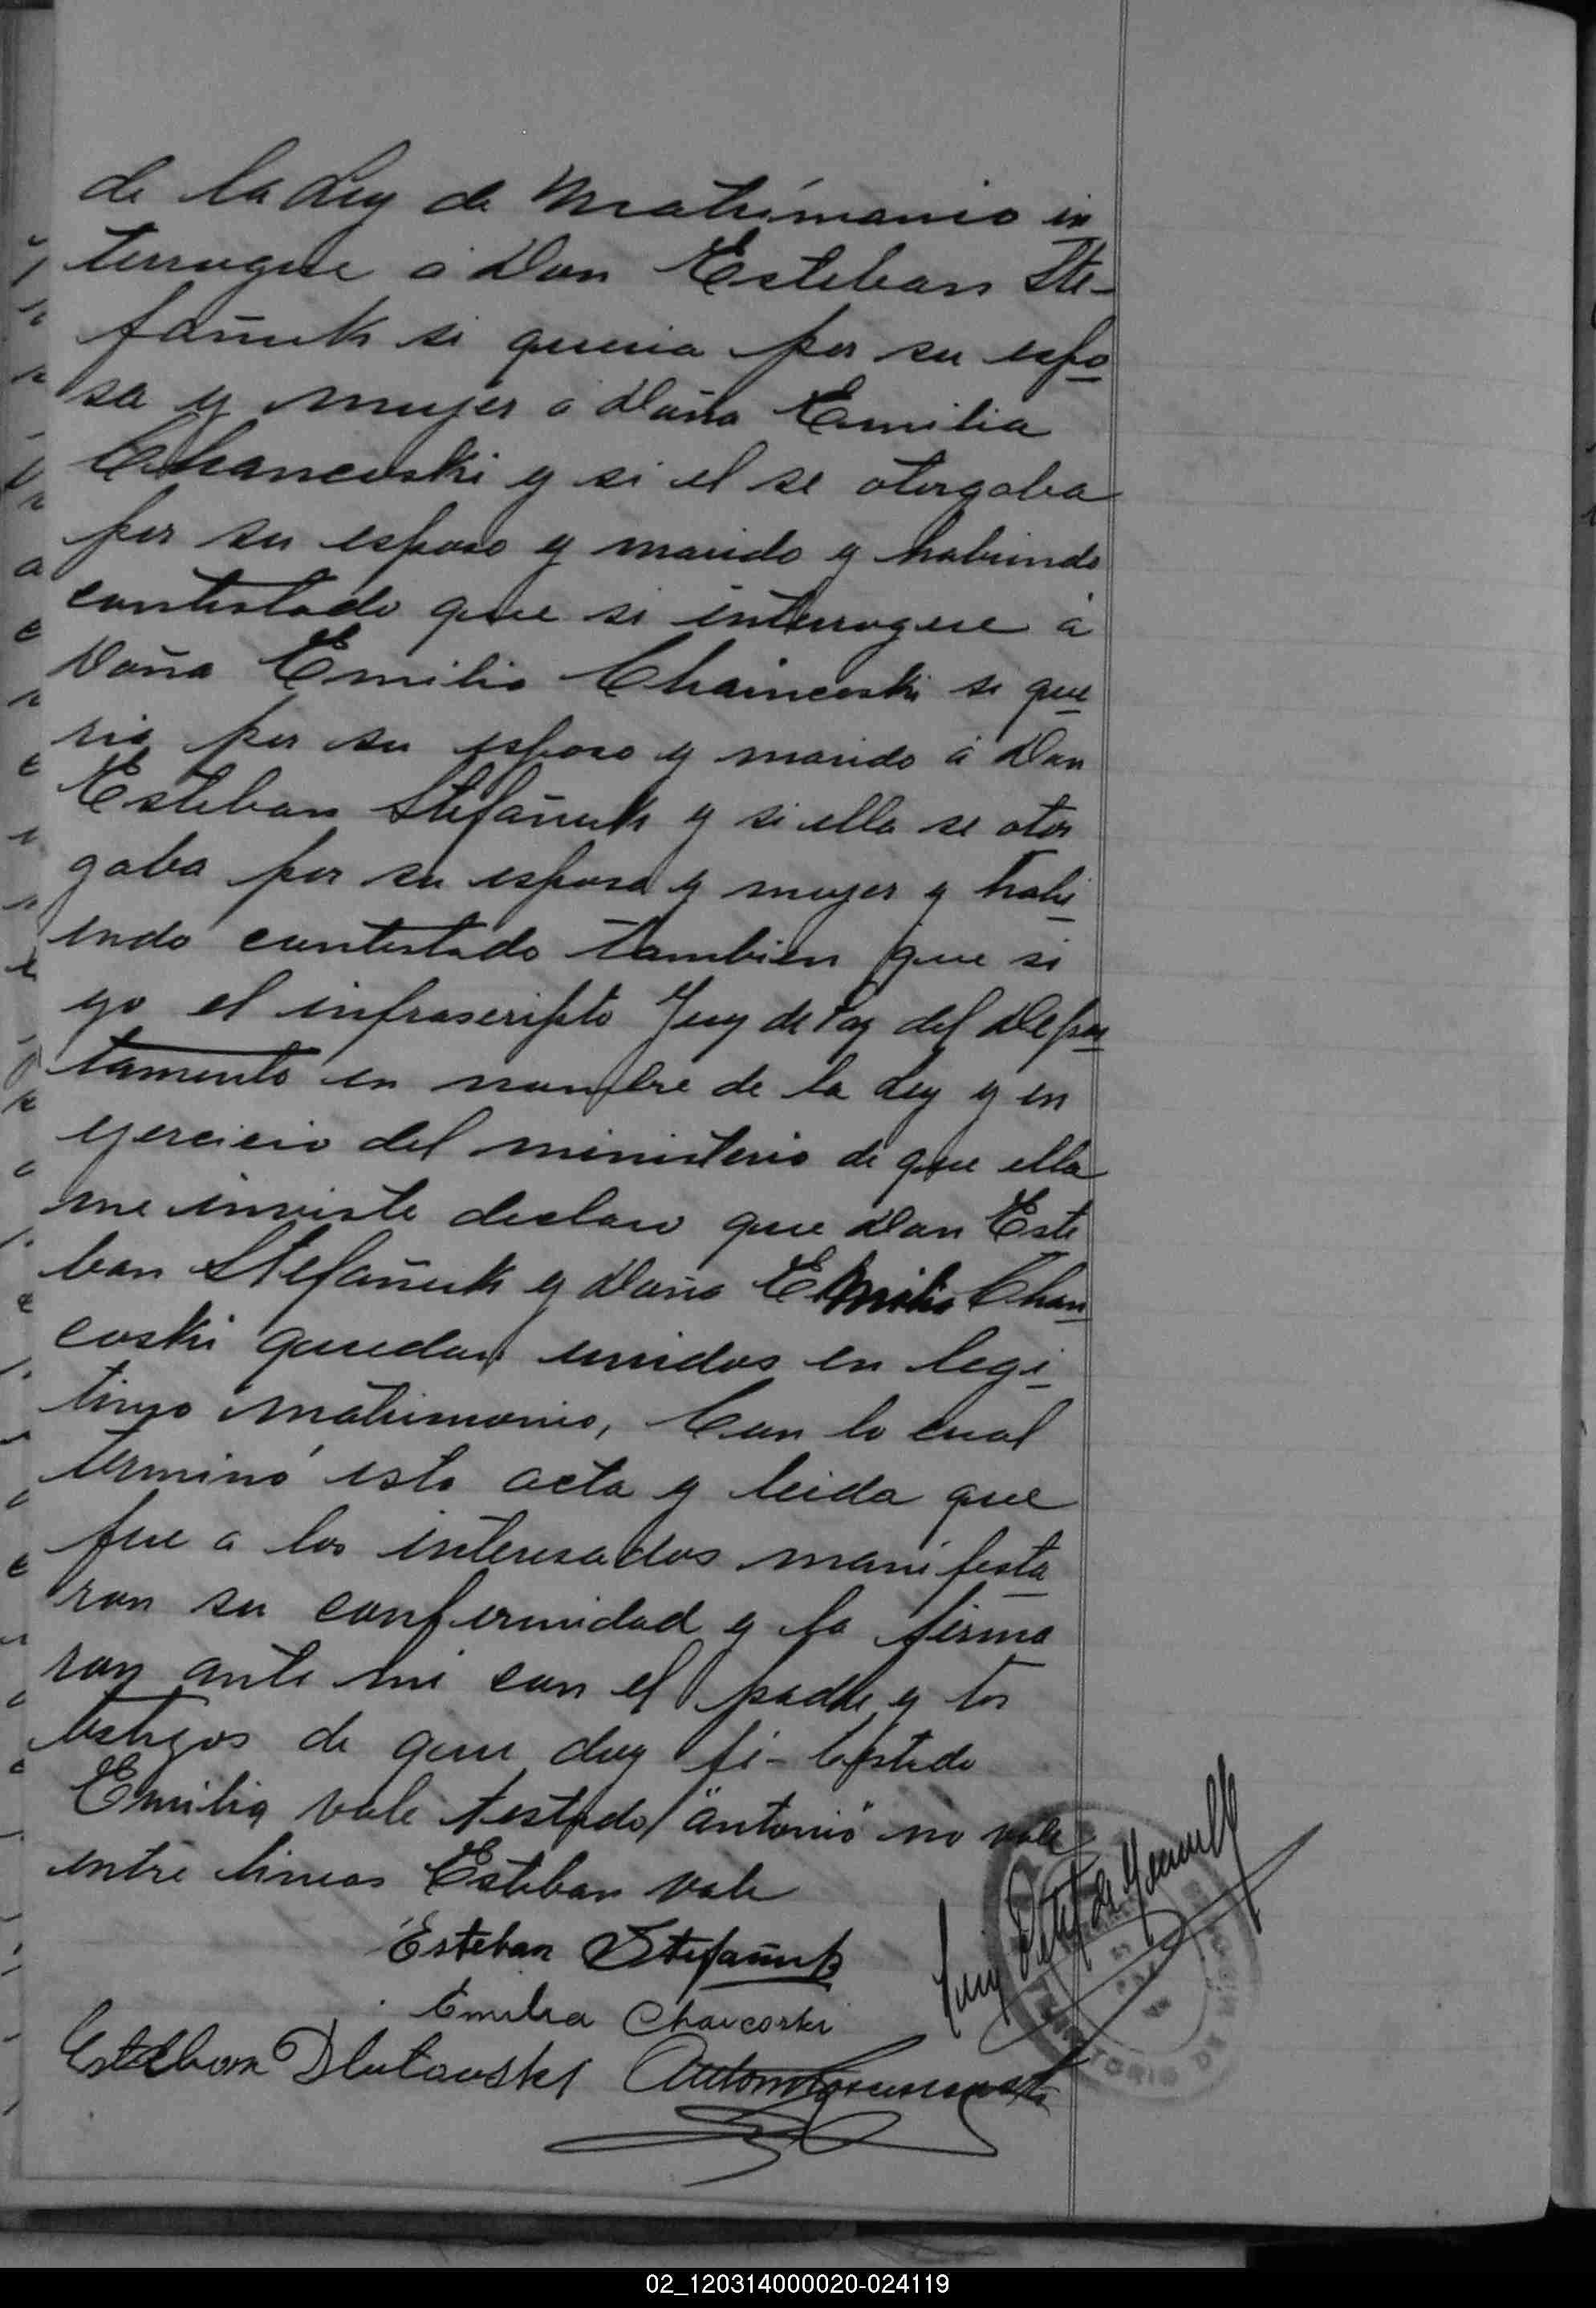 de la Ley de Matrimonio in
terrogue a Don Esteban Ste-
fañuk si queria por su espo
sa y mujer a Doña Emilia
Chancoski y si el se otorgaba
por su esposo y marido y habiendo
contestado que si interrogue á
Doña Emilia Chaincoski si que
ria por su esposo y marido á Don
Esteban Stefañuk y si ella se otor
gaba por su esposa y mujer y habi
endo contestado tambien que si
yo el infrascripto Juez de Paz del Depar
tamento en nombre de la Ley y en
ejercicio del ministerio de que ella
me inviste declaro que Don Este
ban Stefañuk y Doña Emilia Chan
coski quedan unidos en legi
timo matrimonio, Con lo cual
terminó esta acta y leida que
fue a los interesados manifesta
ron su conformidad y la firma
ron ante mi con el padre y los
testigos de que doy fé -
Emilia vale testado "antonio" no vale
entre lineas Esteban vale
Esteban Stefañuk
Emilia Chaicoski
Estebam Dlutouski
TORIO DE
02_120314000020-024119